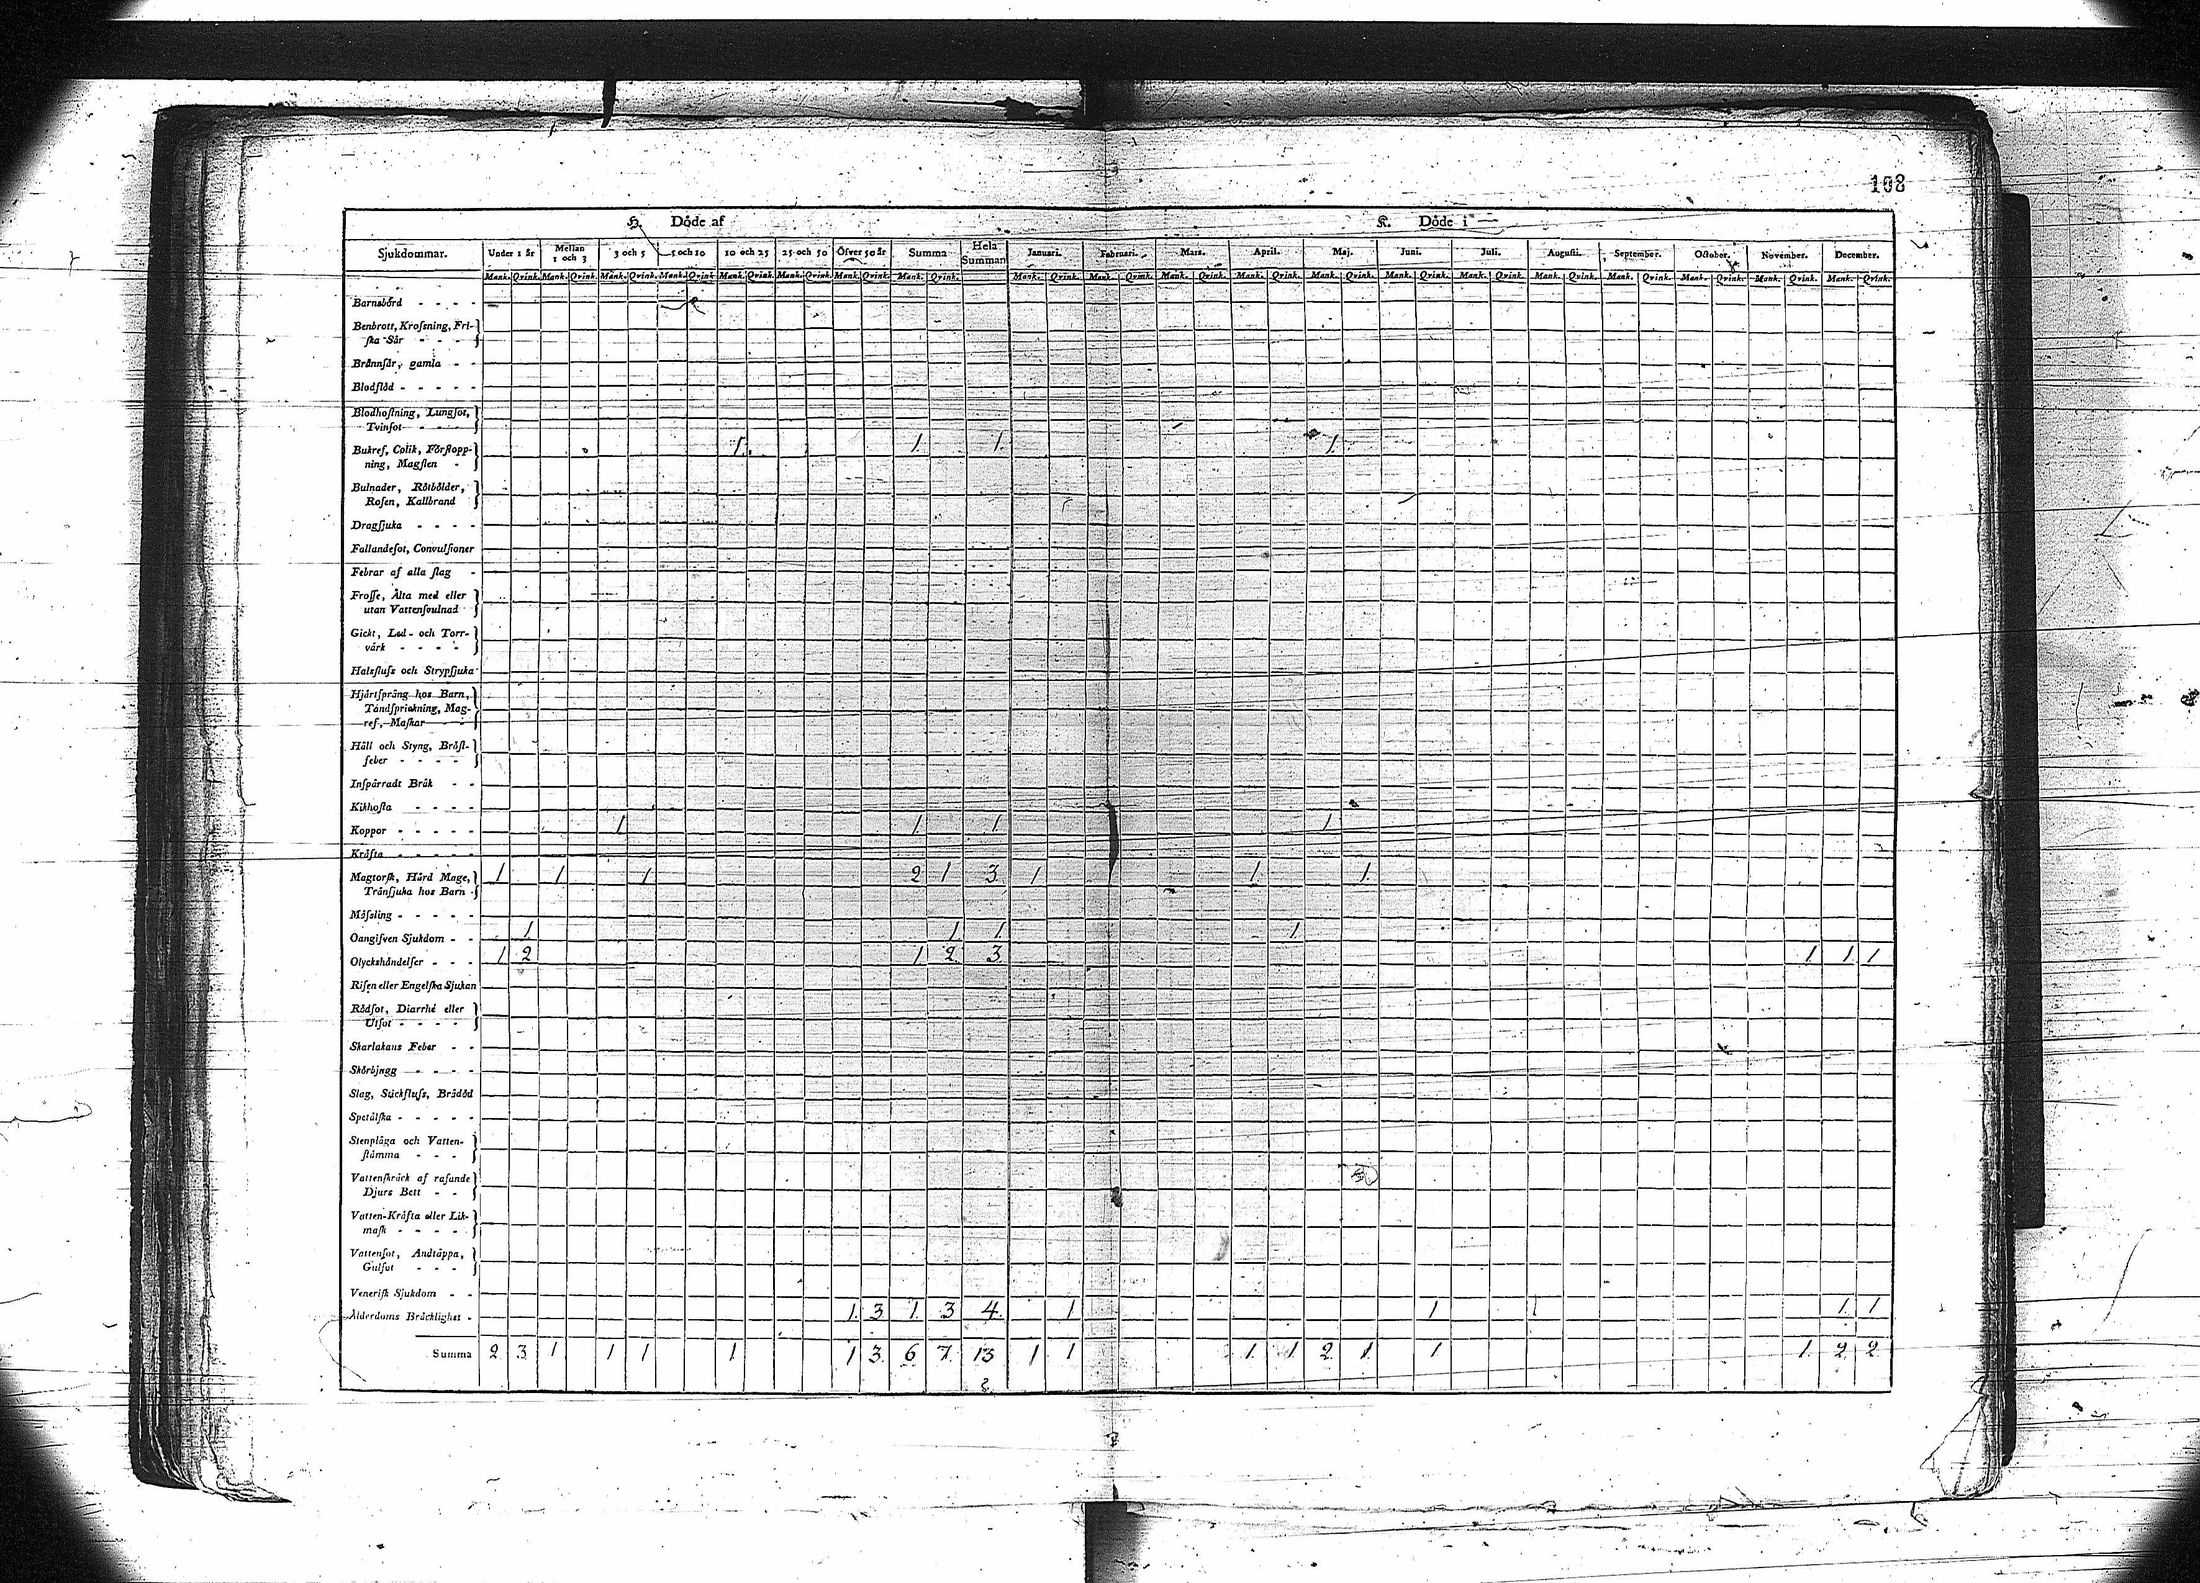 108
H. Döde af K. Döde i
Sjukdommar. Under 1 år Mellan 1 och 3 3 och 5 5 och 10 10 och 25 25 och 50 Öfver 50 år Summa Hela Summan Januari. Februari. Mars. April. Maj. Juni. Juli. Augusti. September. October. November. December.
Mank. Qvink. Mank. Qvink. Mank. Qvink. Mank. Qvink. Mank. Qvink. Mank. Qvink. Mank. Qvink. Mank. Qvink. Mank. Qvink. Mank. Qvink. Mank. Qvink. Mank. Qvink. Mank. Qvink. Mank. Qvink. Mank. Qvink. Mank. Qvink. Mank. Qvink. Mank. Qvink. Mank. Qvink. Mank. Qvink.
Barnsbörd - - - -
Benbrott, Krosſning, Fri-
ſka Sår - - - -
Brännſår, gamla - -
Blodflöd - - - - -
Blodhoſtning, Lungſot,
Tvinſot - - - -
Bukref, Colik, Förſtopp- 1. 1. 1. 1.
ning, Magſten -
Bulnader, Rötbölder,
Roſen, Kallbrand
Dragſjuka - - - -
Fallandeſot, Convulſioner
Febrar af alla ſlag -
Froſſe, Älta med eller
utan Vattenſvulnad
Gickt, Led- och Torr-
värk - - - -
Halsfluſs och Strypſjuka
Hjärtſprång hos Barn,
Tandſprickning, Mag-
ref, Maſkar - -
Håll och Styng, Bröſt-
feber - - - -
Inſpärradt Bråk - -
Kikhoſta - - - -
Koppor - - - - - 1 1. 1. 1.
Kräfta - - - - -
Magtorſk, Hård Mage, 1. 1 1 2 1 3. 1 1. 1.
Tränſjuka hos Barn -
Mäſsling - - - - -
Oangifven Sjukdom - - 1. 1. 1. 1.
Olyckshändelſer - - - 1. 2 1. 2. 3. 1. 1. 1
Riſen eller Engelſka Sjukan
Rödſot, Diarrhé eller
Utſot - - - -
Skarlakans Feber - -
Skörbjugg - - - -
Slag, Stickfluſs, Brådöd
Spetälſka - - - - -
Stenplåga och Vatten-
ſtämma - - -
Vattenſkräck af raſande
Djurs Bett - -
Vatten-Kräfta eller Lik-
maſk - - - -
Vattenſot, Andtäppa,
Gulſot - - -
Veneriſk Sjukdom - -
Ålderdoms Bräcklighet - 1. 3 1. 3 4. 1 1 1. 1
Summa 2 3. 1 1 1 1 1 3. 6 7. 13 1 1 1. 1. 2 1. 1 1. 2. 2